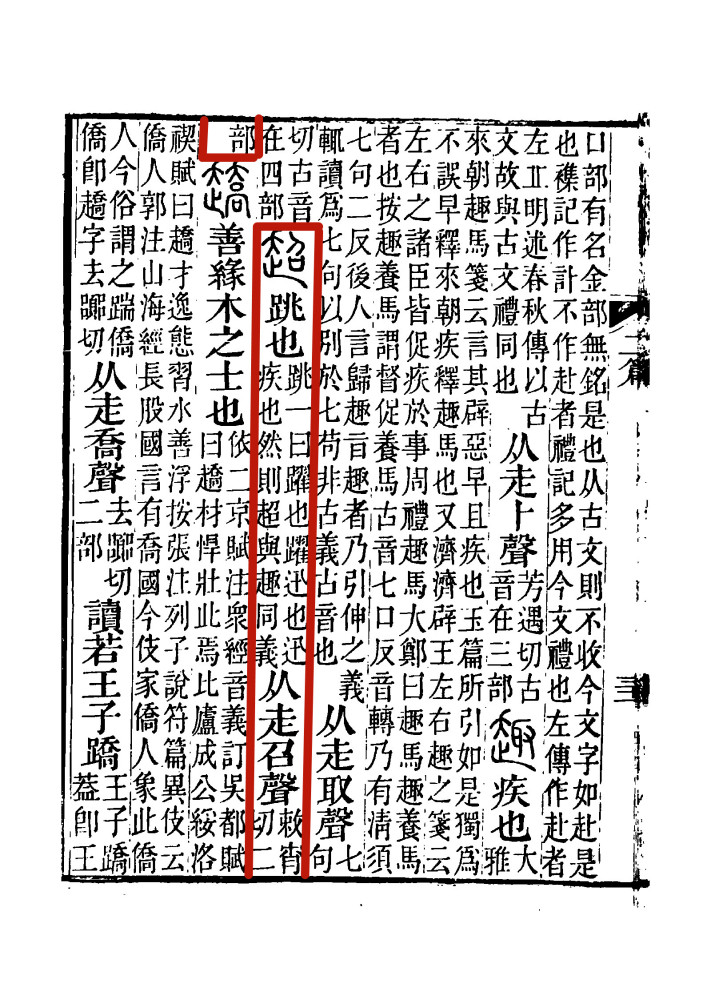 口部有名金部無銘是也从古文則不收今文字如赴是也襍記作訃不作赴者禮記多用今文禮也左傳作赴者
左丘明述春秋傳以古文故與古文禮同也从走卜聲芳遇切古音在三部趣疾也大雅
來朝趣馬箋云言其辟惡早且疾也玉篇所引如是獨爲不誤早釋來朝疾釋趣馬也又濟濟辟王左右趣之箋云
左右之諸臣皆促疾於事周禮趣馬大鄭曰趣馬趣養馬者也按趣養馬謂督促養馬古音七口反音轉乃有清須
七句二反後人言歸趣旨趣者乃引伸之義輒讀爲七句以別於七苟非古義古音也从走取聲七句
切古音在四部超跳也跳一曰躍也躍迅也迅疾也然則超與趣同義从走召聲敕宵切二
部趫善緣木之士也依二京賦注衆經音義訂吳都賦曰趫材悍壯此焉比廬成公綏洛
禊賦曰趫才逸態習水善浮按張注列子說符篇異伎云僑人郭注山海經長股國言有喬國今伎家僑人象此僑
人今俗謂之踹僑僑卽趫字去嚻切从走喬聲去嚻切二部讀若王子蹻王子蹻蓋卽王